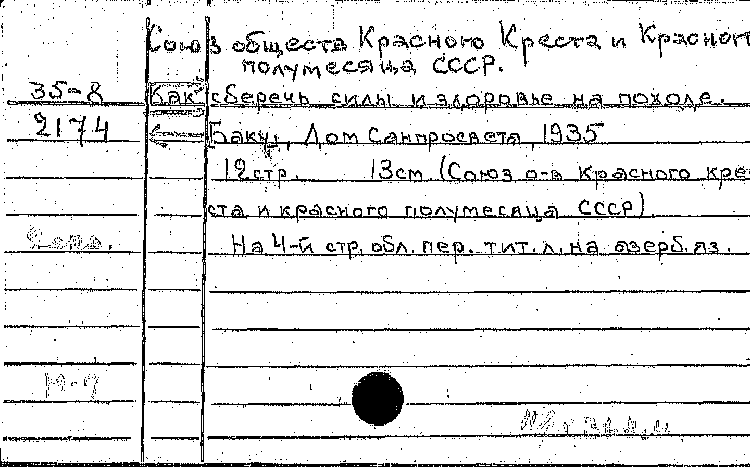 Союз обществ Красного Креста и Красного
полумесяца СССР.
35-8 Как сберечь силы и здоровье на походе.
2174 Баку, Дом Санпросвета, 1935
12стр. 13см (Союз о-в Красного кре
ста и красного полумесяца СССР)
На 4-й стр. обл. пер. тит. л. на азерб. яз.